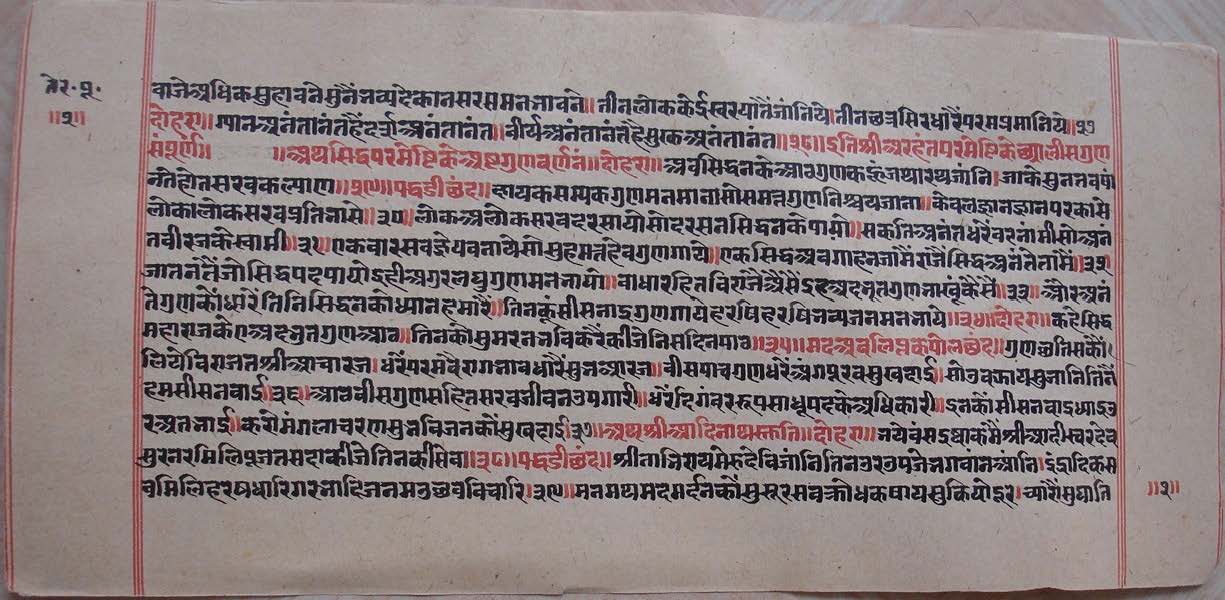 तेर॰पू॰
॥१॥
वाजेअधिकसुहावनेसुनैंनव्यदेकानसरसमनजावने॥तीनलोककेईस्वरयातैंजांनिये।तीनछत्रसिरधारैंपरमप्रमानिये॥१७
दोहरा॥ग्यानअनंतानंतहैंदर्शअनंतानंत॥वीर्यअनंतानंतहैसुरकअनंतानंत॥१८॥इतिश्रीअरहंतपरमेष्टिकेछ्यालीसगुण
संपूर्ण॥ ॥अथसिद्धपरमेष्टिकेअष्टगुणवर्णनं॥दोहरा॥अवसिद्धनकेआठगुणकहूंजथारथजांनि।जाकेसुनतवषां
नतेहोतसरवकल्याण॥१९॥पद्धडीछंद॥ज्ञायकसम्यकगुणमनमानासोसमत्तगुणनिश्चयजाना॥केवलज्ञानज्ञानपरकासे
लोकालोकसरवप्रतिभासे॥२०॥लोकअलोकसरवदरसायोसोदरसनसिद्धनकेपायो॥सकतिअनंतधरेंवरनामीसोअनं
तवीरजकेस्वामी॥२१॥एकवारसवज्ञेयवतायेसोसुहमत्तहेवगुणगाये॥एकसिद्धअवगाहनजामैंराजैंसिद्धअनंतेतामैं॥२२
जातनतैंजोसिद्धपदपायोऽहीअगरलघुगुणमनभायो॥वाधारहितविराजेऔसेंइहअदभूतगुणनावूंकैसें॥२३॥औरअनं
तेगुणकोंधारेंतिनिसिद्धनकोध्यानहमारैं॥तिनकूंसीसनाइगुणगायेहरषिहरषिनव्यजनमनभाये॥२४॥दोहरा॥कहेसिद्ध
महाराजकेएअदभुतगुणआठ॥तिनकोसुमरननविकरैंकीजेनिसदिनपाठ॥२५॥मदअवलिप्तकपोलछंद॥गुणछतिसकौं
लियेविराजतश्रीआचारज।धरैंपरमवैरागभावधारैंसुभआरज॥वीसपाचगुणधरेंअंगपूरवसुखदाई।सोउवझायसुजानितिनैं
हमसीसनवाई॥२६॥आठवीसगुणसहितसरवजीवनउपगारी॥धरैंदिगंवररूपसाधूपदकेअधिकारी॥इनकोंसीसनवाइध्याइउ
रअतभाई॥करोमंगलाचरणसुनविजनकोंसुखदाई॥२७॥अथश्रीआदिनाथस्तुति॥दोहरा॥जयेवंसइष्वाकमैंश्रीआदीस्वरदेव
सुरनरमिलिपूजतसदाकीजेतिनकीसेवा॥२८॥पद्धडीछंद॥श्रीनाभिरायमरुदेविजांनितिनउरउपजेभगवांनआंनि।इंद्रादिकस
वमिलिहरषधारिगरभादिजनमउछवविचारि।२९॥मनमथमदमर्दनकोंसुसूरसवक्रोधकषायसुकियोदूर।च्यारौंसुघाति
॥२॥